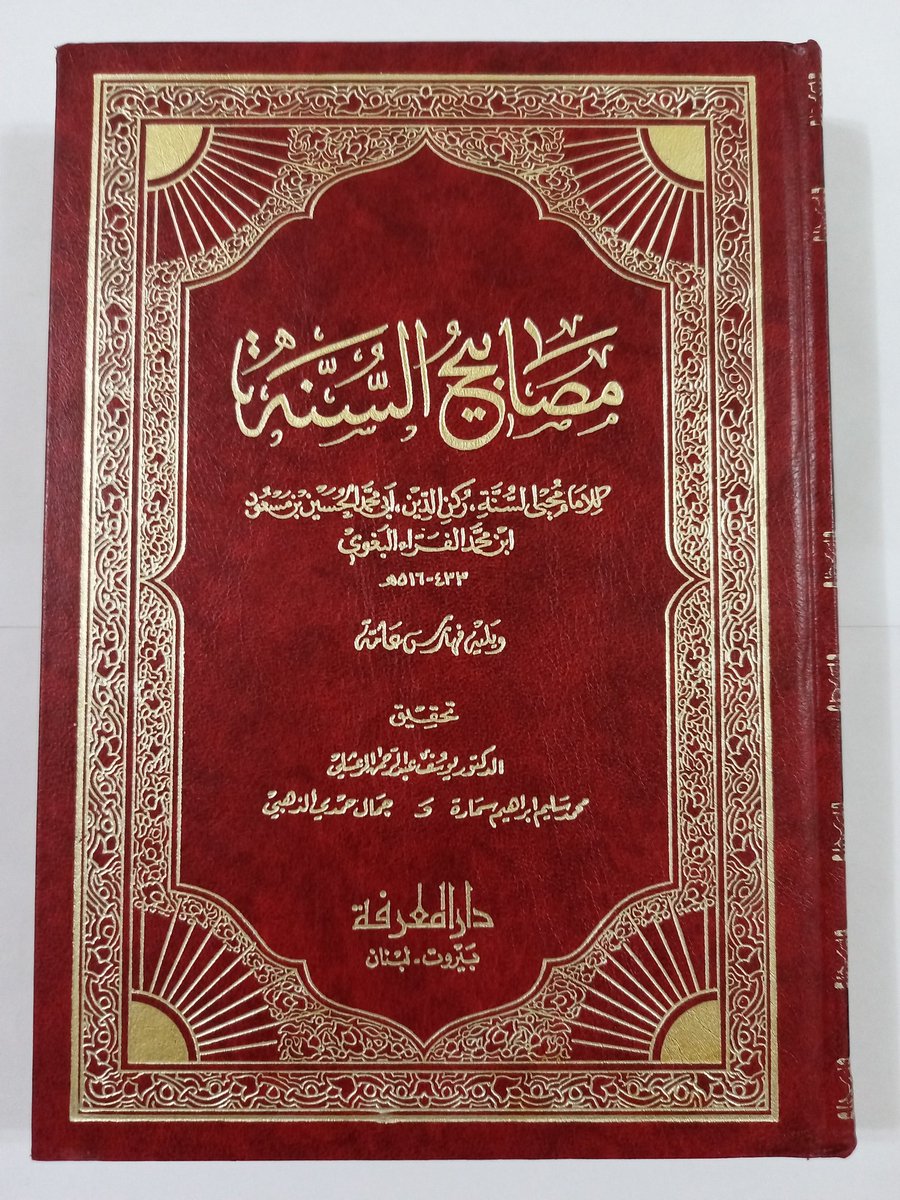 مصابيح السُّنَّة
للإمام محيي السُّنَّة، ركن الدين، أبي محمد الحسين بن مسعود
ابن محمد الفراء البغوي
٤٣٣-٥١٦هـ
ويليه فهارس عامة
تحقيق
الدكتور يوسف عبد الرحمن المرعشلي
محمد سليم ابراهيم سمارة و جمال حمدي الذهبي
دار المعرفة
بيروت - لبنان